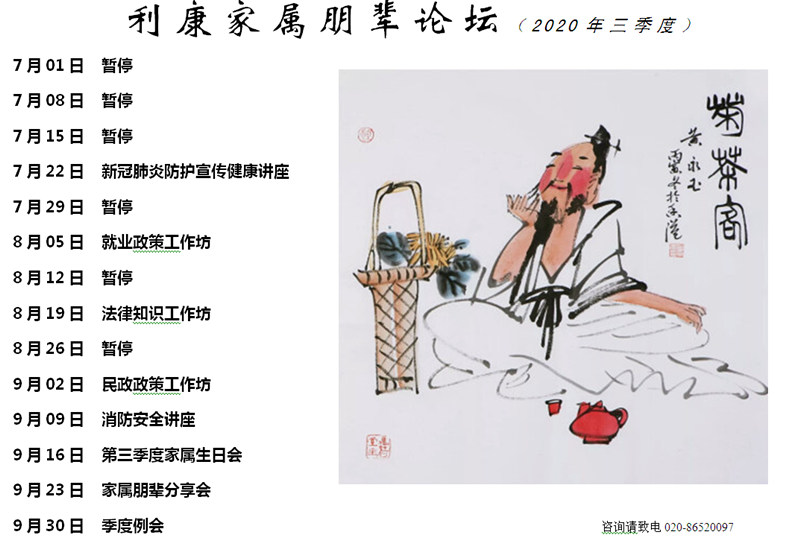 利康家属朋辈论坛（2020年三季度）
7月01日 暂停
7月08日 暂停
7月15日 暂停
7月22日 新冠肺炎防护宣传健康讲座
7月29日 暂停
8月05日 就业政策工作坊
8月12日 暂停
8月19日 法律知识工作坊
8月26日 暂停
9月02日 民政政策工作坊
9月09日 消防安全讲座
9月16日 第三季度家属生日会
9月23日 家属朋辈分享会
9月30日 季度例会
菊茶客
黄永玉
咨询请致电 020-86520097